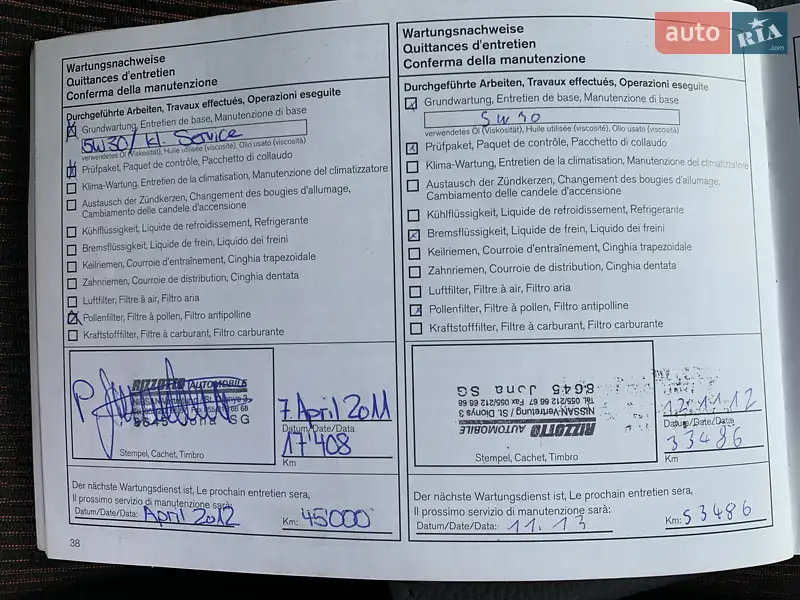 Wartungsnachweise
Quittances d'entretien
Conferma della manutenzione
Durchgeführte Arbeiten, Travaux effectués, Operazioni eseguite
Grundwartung, Entretien de base, Manutenzione di base
5W30/ kl. Service
verwendetes Öl (Viskosität), Huile utilisée (viscosité), Olio usato (viscosità)
Prüfpaket, Paquet de contrôle, Pacchetto di collaudo
Klima-Wartung, Entretien de la climatisation, Manutenzione del climatizzatore
Austausch der Zündkerzen, Changement des bougies d'allumage,
Cambiamento delle candele d'accensione
Kühlflüssigkeit, Liquide de refroidissement, Refrigerante
Bremsflüssigkeit, Liquide de frein, Liquido dei freini
Keilriemen, Courroie d'entraînement, Cinghia trapezoidale
Zahnriemen, Courroie de distribution, Cinghia dentata
Luftfilter, Filtre à air, Filtro aria
Pollenfilter, Filtre à pollen, Filtro antipolline
Kraftstofffilter, Filtre à carburant, Filtro carburante
RIZZOTTO AUTOMOBILE
8645 Jona SG
7. April 2011
Datum/Date/Data
17'408
Km
Stempel, Cachet, Timbro
Der nächste Wartungsdienst ist, Le prochain entretien sera,
Il prossimo servizio di manutenzione sarà:
Datum/Date/Data: April 2012 Km: 45'000
38
Wartungsnachweise
Quittances d'entretien
Conferma della manutenzione
Durchgeführte Arbeiten, Travaux effectués, Operazioni eseguite
Grundwartung, Entretien de base, Manutenzione di base
5W30
verwendetes Öl (Viskosität), Huile utilisée (viscosité), Olio usato (viscosità)
Prüfpaket, Paquet de contrôle, Pacchetto di collaudo
Klima-Wartung, Entretien de la climatisation, Manutenzione del climatizzatore
Austausch der Zündkerzen, Changement des bougies d'allumage,
Cambiamento delle candele d'accensione
Kühlflüssigkeit, Liquide de refroidissement, Refrigerante
Bremsflüssigkeit, Liquide de frein, Liquido dei freini
Keilriemen, Courroie d'entraînement, Cinghia trapezoidale
Zahnriemen, Courroie de distribution, Cinghia dentata
Luftfilter, Filtre à air, Filtro aria
Pollenfilter, Filtre à pollen, Filtro antipolline
Kraftstofffilter, Filtre à carburant, Filtro carburante
RIZZOTTO AUTOMOBILE
NISSAN-Vertretung / St. Dionys 3
Tel. 055/212 66 67 Fax 055/212 66 68
8645 Jona SG
12.11.12
Datum/Date/Data
33486
Km
Stempel, Cachet, Timbro
Der nächste Wartungsdienst ist, Le prochain entretien sera,
Il prossimo servizio di manutenzione sarà:
Datum/Date/Data: 11.13 Km: 53486
auto RIA
.com